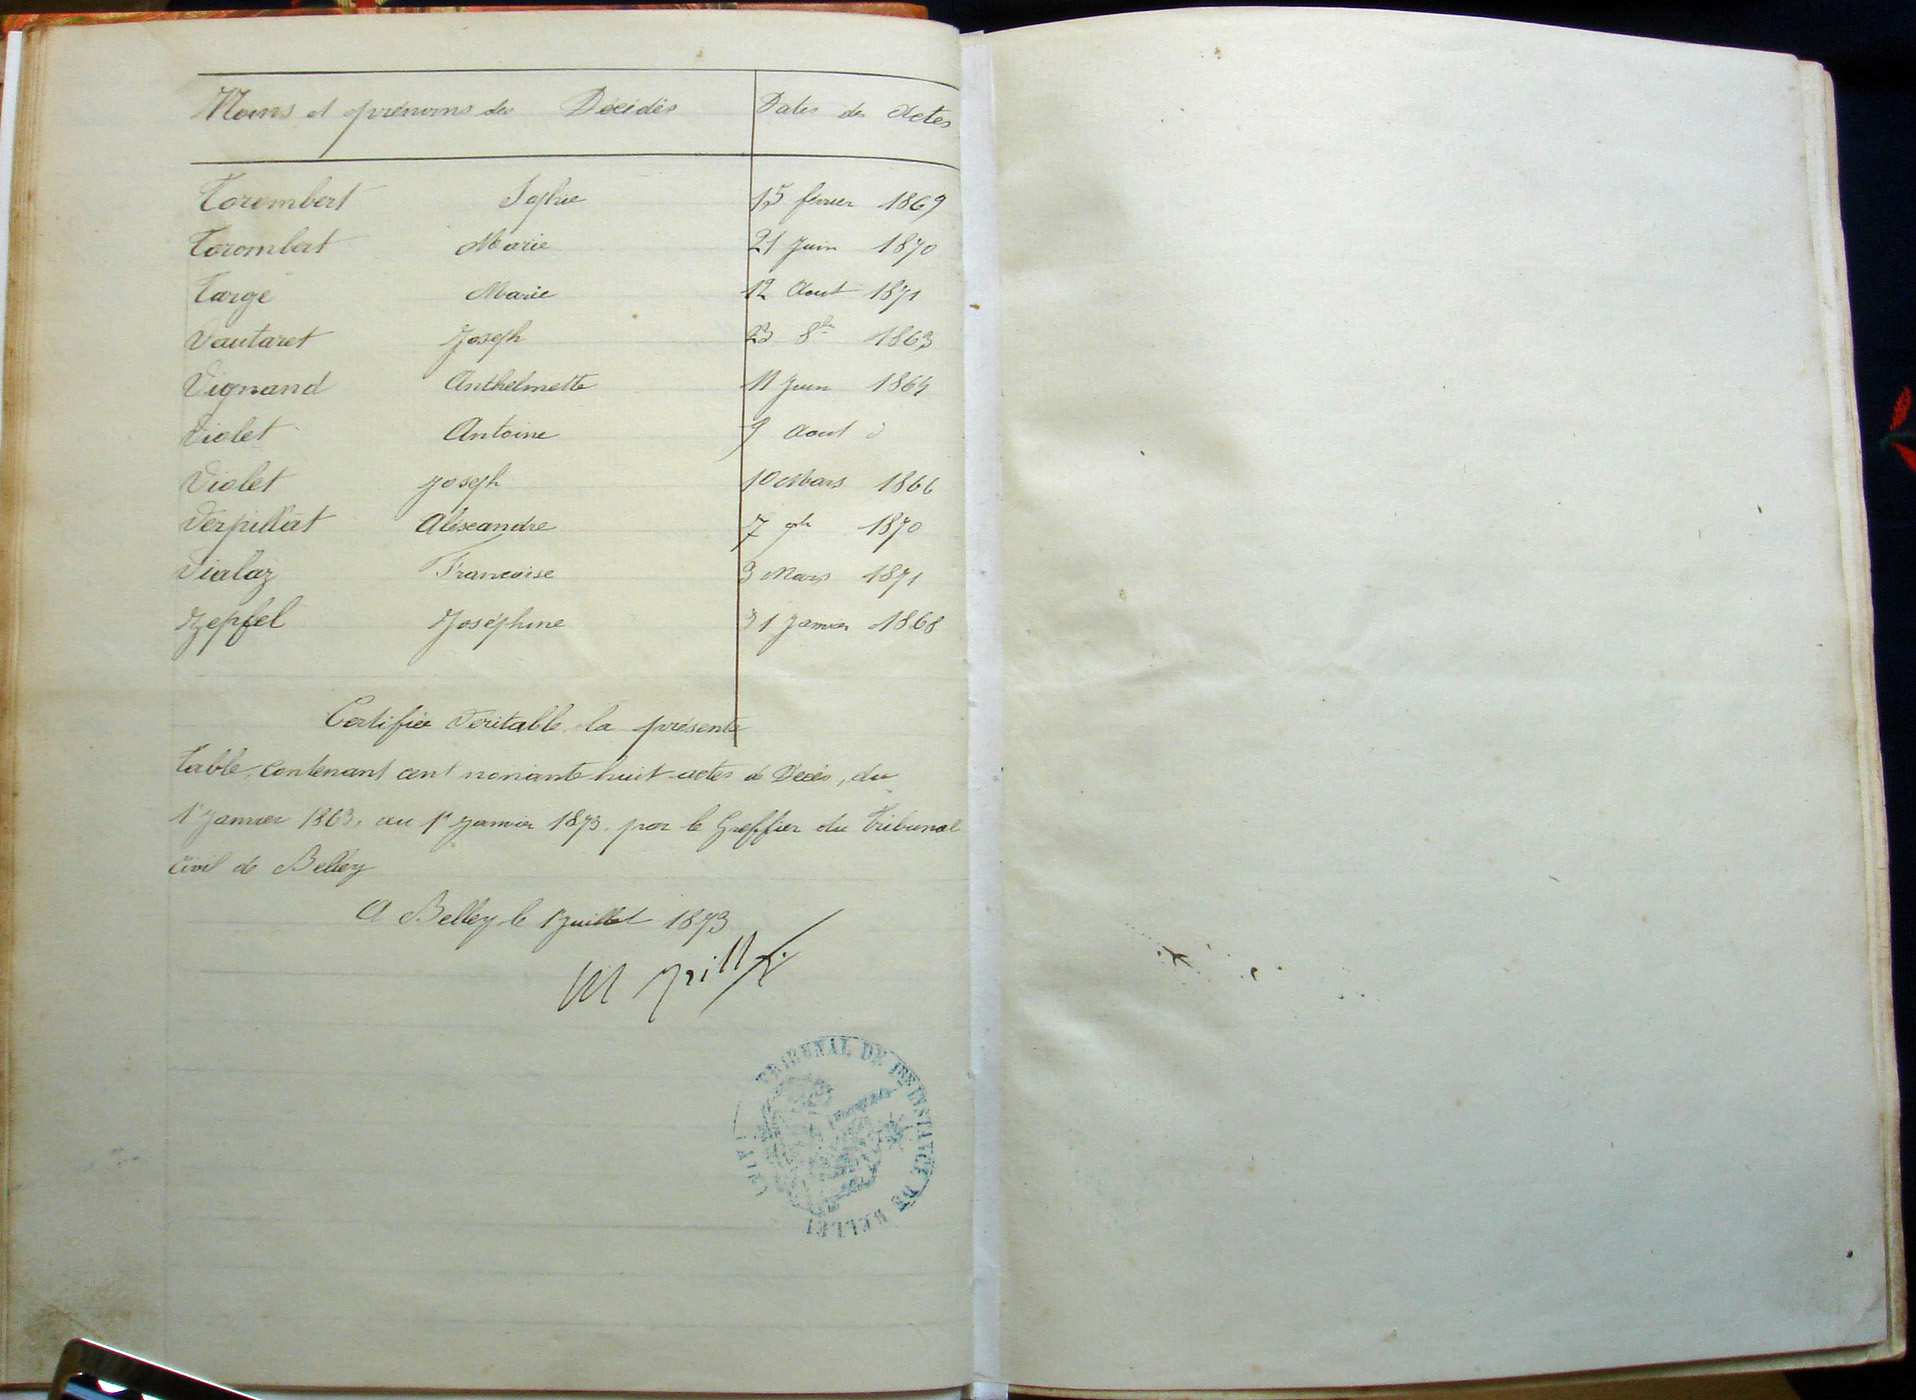 Noms et prénoms des Décédés Dates des Actes
Torembert Sophie 15 février 1869
Torombert Marie 21 Juin 1870
Targe Marie 12 Aout 1871
Vautaret Joseph 23 8bre 1863
Vignand Anthelmette 11 Juin 1864
Violet Antoine 9 Aout d
Violet Joseph 10 Mars 1866
Verpillat Alexandre 7 9bre 1870
Vialaz Francoise 3 Mars 1871
Zepfel Joséphine 31 Janvier 1868
Certifiée Veritable la présente
Table, Contenant cent nonante huit actes de Décès, du
1er Janvier 1863, au 1er Janvier 1873, par le Greffier du Tribunal
Civil de Belley
A Belley le 1 Juillet 1873
TRIBUNAL DE 1ERE INSTANCE DE BELLEY
(AIN)